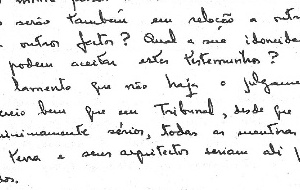 serão também em relação a outro
outros factos? Qual a sua idoneida
podem aceitar estes testemunhos?
lamento que não haja o julgame
creio bem que em Tribunal, desde que
minimamente sérios, todas as mentiras
e seus arquitectos seriam ali
dos.